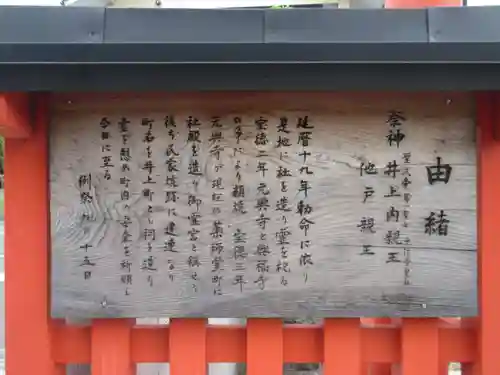 由緒
祭神 井上内親王
他戸親王
延暦十九年勅命に依り
是地に社を造り霊を祀る
宝徳三年元興寺と興福寺
により類焼 宝徳三年
元興寺が現在の薬師堂町に
社殿を造り御霊宮と称せり
後ち民家焼跡に建連なり
町名を井上町とし祠を造り
霊を慰め町内の安泰を祈願し
今日に至る
例祭 九 十五日